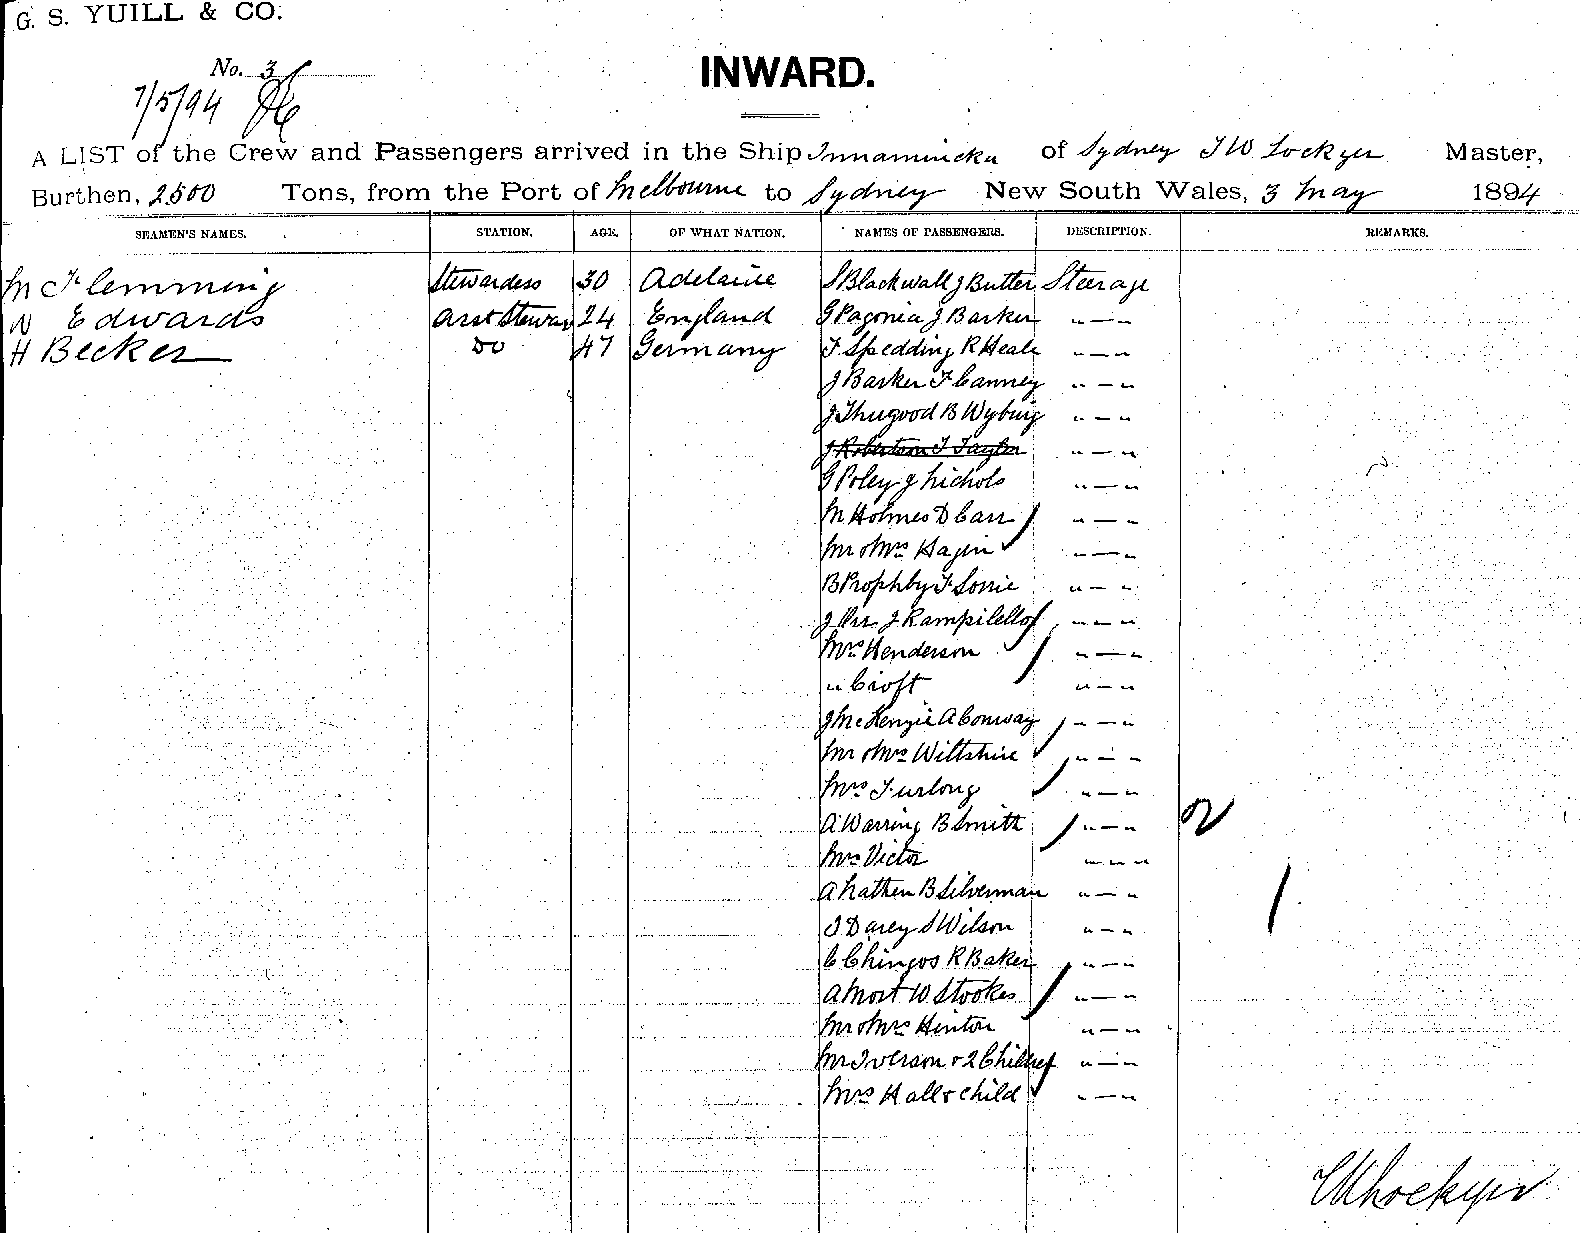 G. S. YUILL & CO.
No. 3
7/5/94
INWARD.
A LIST of the Crew and Passengers arrived in the Ship Innamincka of Sydney T W Lockyer Master,
Burthen, 2500 Tons, from the Port of Melbourne to Sydney New South Wales, 3 May 1894
SEAMEN'S NAMES. STATION. AGE. OF WHAT NATION. NAMES OF PASSENGERS. DESCRIPTION. REMARKS.
M c Flemming Stewardess 30 Adelaide S Blackwall J Butler Steerage
N Edwards Asst Steward 24 England G Pagonia J Barker " — "
H Becker Do 47 Germany F Spedding R Heale " — "
J Barker F Canney " — "
J Thugood B Wyburg " — "
J Robertson T Taylor " — "
G Poley J Nichols " — "
M Holmes D Carr " — "
Mr & Mrs Hagin " — "
B Prophby F Lorrie " — "
J Orr J Rampilello " — "
Mrs Henderson " — "
" Croft " — "
J McKenzie A Conway " — "
Mr & Mrs Wiltshire " — "
Mrs Furlong " — "
A Warring B Smith " — " 2
Mrs Victor " — "
A Nathen B Silverman " — "
J Darcy S Wilson " — "
C Chingos R Baker " — "
A Mort W Stookes " — "
Mr & Mrs Hinton " — "
Mr Iverson & 2 Children " — "
Mrs Hall & Child " — "
T W Lockyer